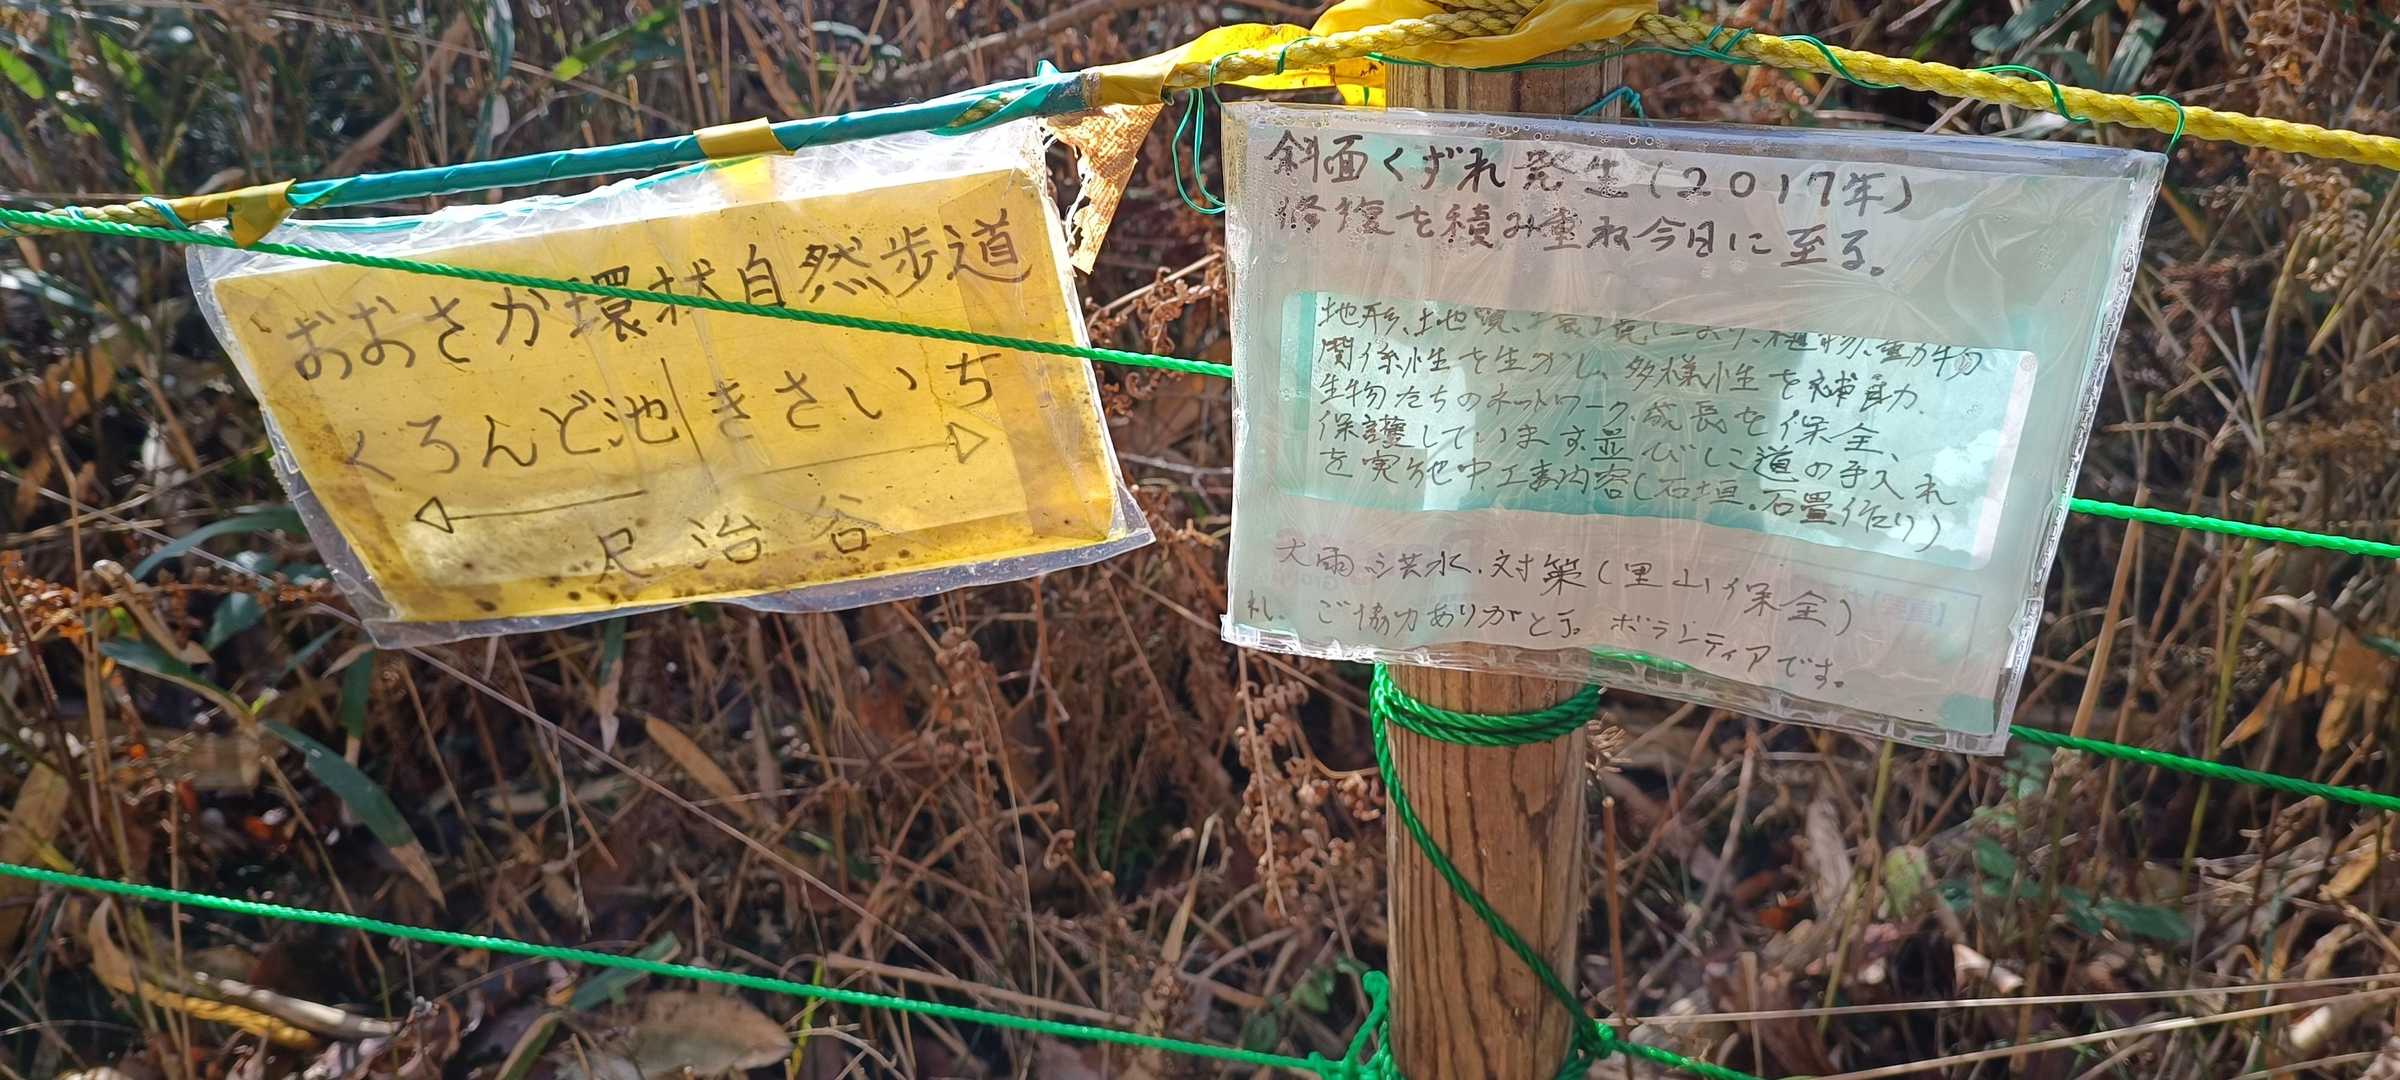 おおさか環状自然歩道
くろんど池 きさいち
尺治谷
斜面くずれ発生(2017年)
修復を積み重ね今日に至る。
地形、土地質、により、植物、動物
関係性を生かし、多様性を補良力、
生物たちのネットワーク、成長を保全、
保護しています。並びに道の手入れ
を実施中、工事内容(石垣、石畳作り)
大雨、洪水、対策(里山保全)
ご協力ありがとう。ボランティアです。